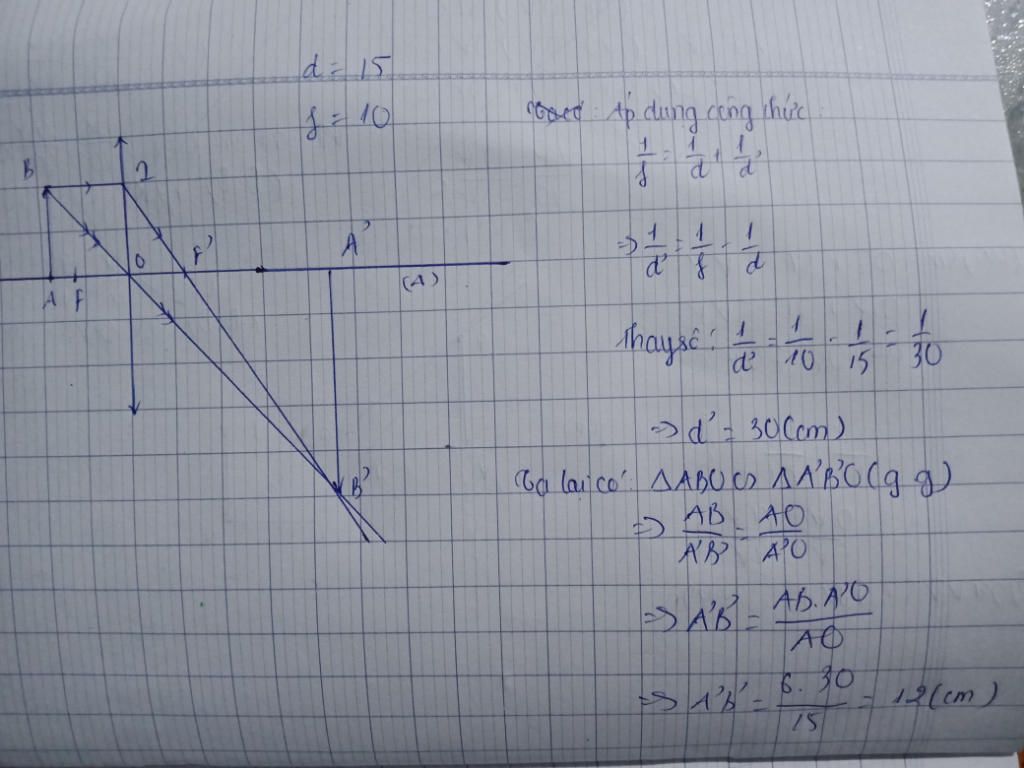 d = 15
f = 10
B I
O F' A' (Δ)
A F
B'
: Áp dụng công thức :
1/f = 1/d + 1/d'
=> 1/d' = 1/f - 1/d
Thay số : 1/d' = 1/10 - 1/15 = 1/30
=> d' = 30 (cm)
Ta lại có : ΔABO ∽ ΔA'B'O (g g)
=> AB/A'B' = AO/A'O
=> A'B' = AB.A'O/AO
=> A'B' = 6.30/15 = 12 (cm)